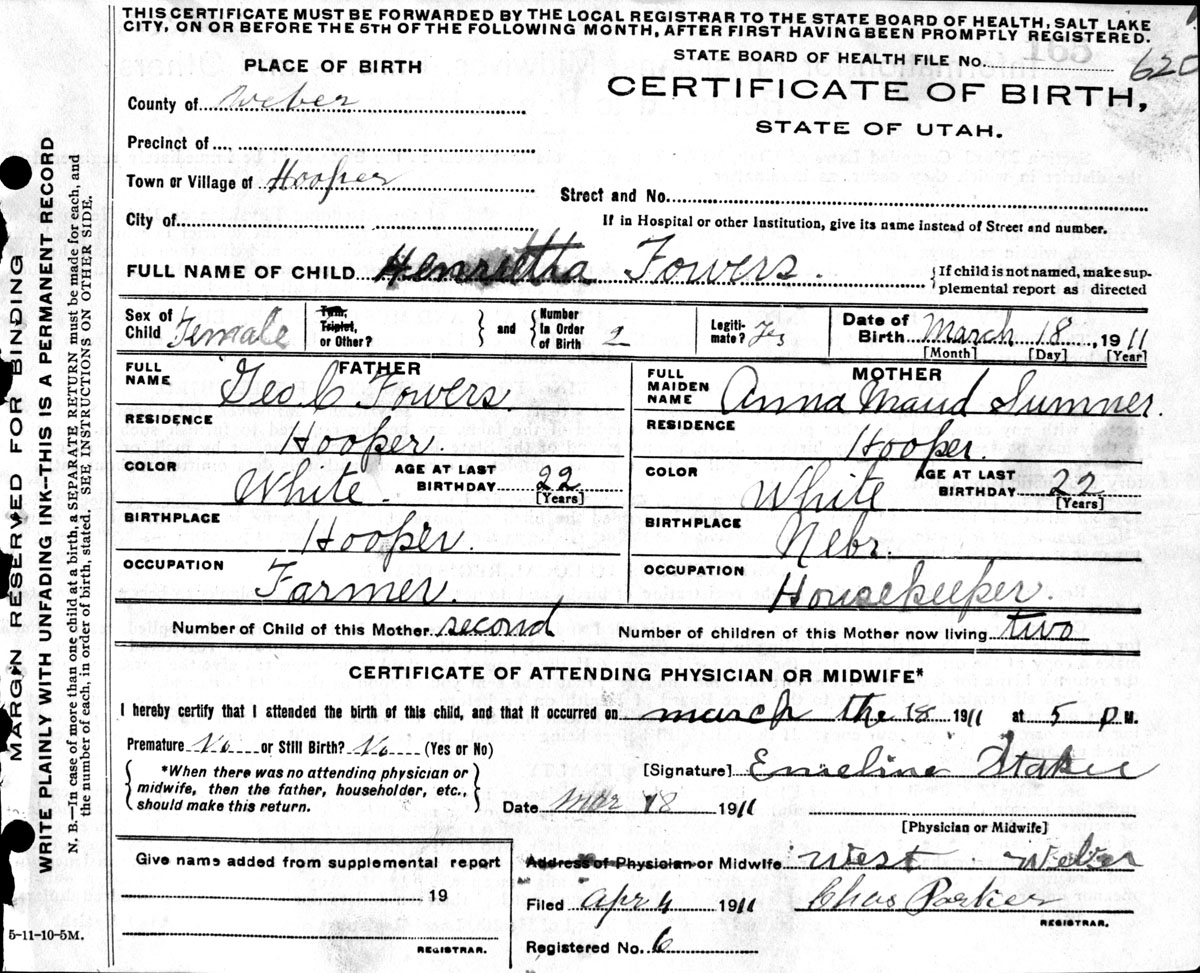 THIS CERTIFICATE MUST BE FORWARDED BY THE LOCAL REGISTRAR TO THE STATE BOARD OF HEALTH, SALT LAKE
CITY, ON OR BEFORE THE 5TH OF THE FOLLOWING MONTH, AFTER FIRST HAVING BEEN PROMPTLY REGISTERED.
STATE BOARD OF HEALTH FILE No. 620
PLACE OF BIRTH
CERTIFICATE OF BIRTH,
STATE OF UTAH.
County of Weber
Precinct of
Town or Village of Hooper
Street and No.
City of
If in Hospital or other Institution, give its name instead of Street and number.
FULL NAME OF CHILD Henrietta Fowers.
If child is not named, make sup-
plemental report as directed
Sex of Child Female
Twin, Triplet, or Other?
and
Number In Order of Birth 2
Legiti-mate? Yes
Date of Birth March 18, 1911
[Month] [Day] [Year]
FATHER
FULL NAME Geo C Fowers.
RESIDENCE
Hooper.
COLOR White. AGE AT LAST BIRTHDAY 22
[Years]
BIRTHPLACE
Hooper.
OCCUPATION
Farmer.
MOTHER
FULL MAIDEN NAME Anna Maud Sumner.
RESIDENCE
Hooper.
COLOR White AGE AT LAST BIRTHDAY 22
[Years]
BIRTHPLACE
Nebr.
OCCUPATION
Housekeeper.
Number of Child of this Mother second Number of children of this Mother now living two
CERTIFICATE OF ATTENDING PHYSICIAN OR MIDWIFE*
I hereby certify that I attended the birth of this child, and that it occurred on march the 18 1911 at 5 P M.
Premature No or Still Birth? No (Yes or No)
*When there was no attending physician or
midwife, then the father, householder, etc.,
should make this return.
[Signature] Emeline Staker
Date Mar 18 1911
[Physician or Midwife]
Give name added from supplemental report
19
REGISTRAR.
Address of Physician or Midwife West Weber
Filed Apr 4 1911 Chas Parker
REGISTRAR.
Registered No. 6
5-11-10-5M.
MARGIN RESERVED FOR BINDING
WRITE PLAINLY WITH UNFADING INK--THIS IS A PERMANENT RECORD
N. B.—In case of more than one child at a birth, a SEPARATE RETURN must be made for each, and
the number of each, in order of birth, stated. SEE INSTRUCTIONS ON OTHER SIDE.